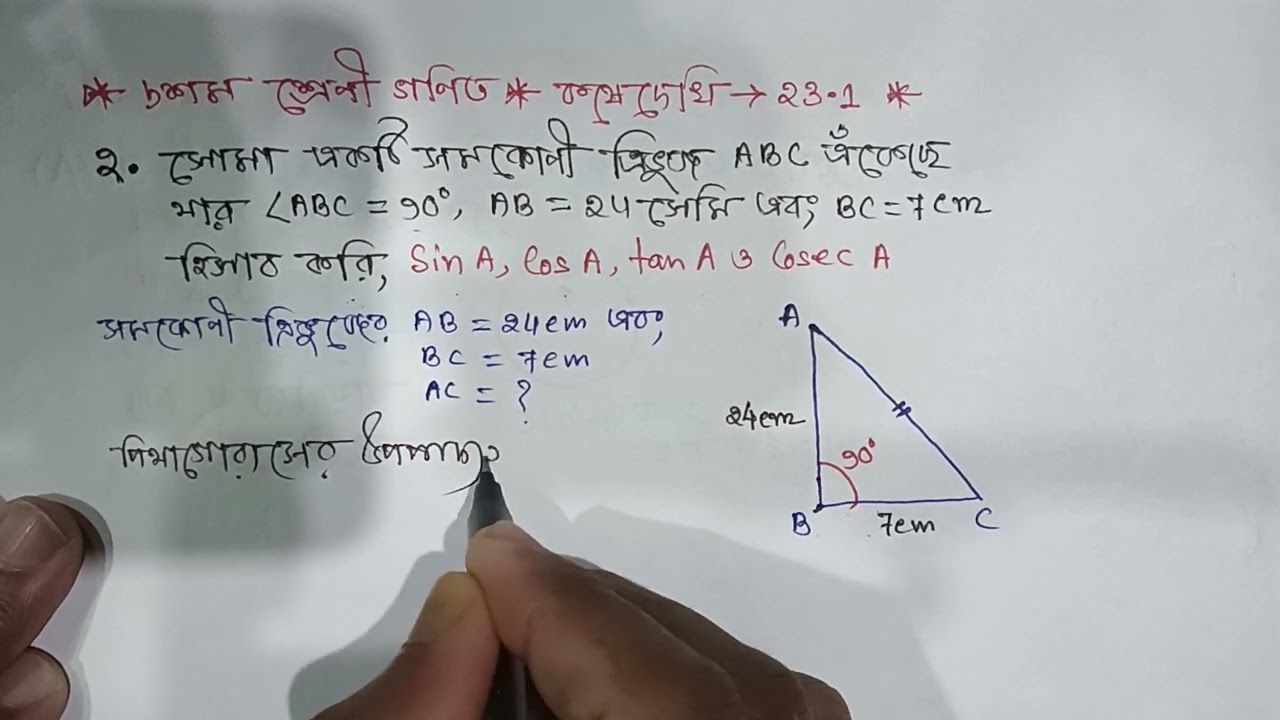 * দশম শ্রেণী গনিত * কষে দেখি → 23.1 *
২. সোমা একটি সমকোনী ত্রিভুজ ABC এঁকেছে
যার ∠ABC = 90°, AB = 24 সেমি এবং BC = 7cm
হিসাব করি, Sin A, Cos A, tan A ও Cosec A
সমকোনী ত্রিভুজের AB = 24cm এবং,
BC = 7cm
AC = ?
পিথাগোরাসের উপপাদ্য
A
24cm
90°
B
7cm
C